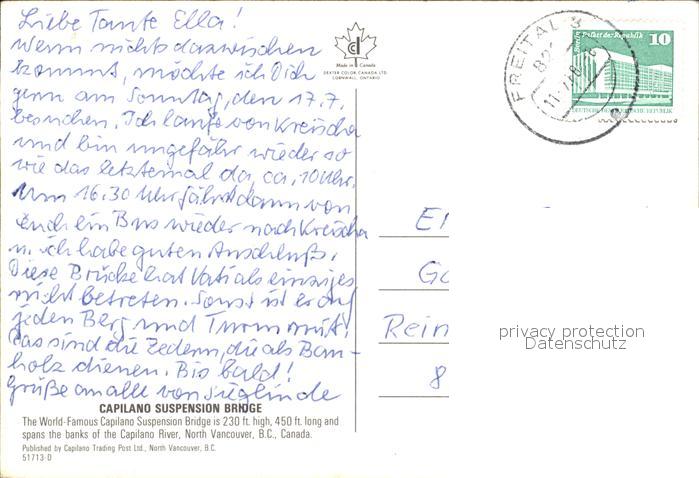 Liebe Tante Ella!
Wenn nichts dazwischen
kommt, möchte ich Dich
gern am Sonntag, den 17.7.
besuchen. Ich laufe von Kreischa
und bin ungefähr wieder so
wie das letztemal da, ca. 10 Uhr.
Um 16.30 Uhr fährt dann von
Euch ein Bus wieder nach Kreischa
u. ich habe guten Anschluß.
Diese Brücke hat Vati als einziges
nicht betreten. Sonst ist er auf
jeden Berg und Turm mit.
Das sind die Zedern, die als Bau-
holz dienen. Bis bald!
Grüße an alle von Sieglinde
CAPILANO SUSPENSION BRIDGE
The World-Famous Capilano Suspension Bridge is 230 ft. high, 450 ft. long and
spans the banks of the Capilano River, North Vancouver, B.C., Canada.
Published by Capilano Trading Post Ltd., North Vancouver, B.C.
51713-D
Made in Canada
DEXTER COLOR CANADA LTD.
CORNWALL, ONTARIO
FREITAL 3
Palast der Republik
10
El
Rein
8
privacy protection
Datenschutz